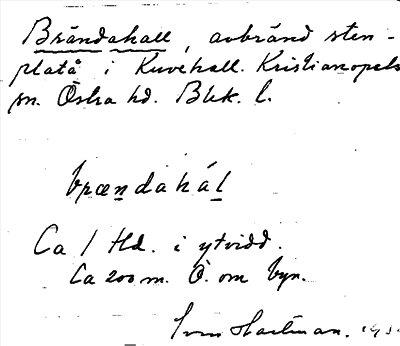 Brändahall, avbränd sten-
platå i Kuvehall. Kristianopels
sn. Östra hd. Blek. l.
brændahál
Ca 1 Hd. i ytvidd.
Ca 200 m. Ö. om byn.
Sven Hartman.